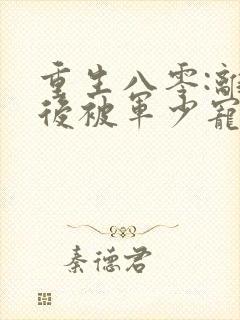 重生八零:離
後被軍少寵
秦德君